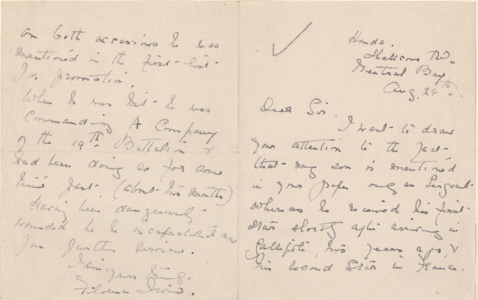 Honda.
Shellcove Rd.
Neutral Bay
Aug. 28th
Dear Sir.
I want to draw
your attention to the fact
that my son is mentioned
in your paper only as Sergeant
Whereas he received his first
star shortly after arriving in
Gallipoli, two years ago, &
his second Star in France.
on both occasions he was
mentioned in the first list
for promotion.
When he was hit he was
Commanding A Company
of the 19th Battalion &
had been doing so for some
time past. (about two months)
Having been dangerously
wounded he is incapacitated
for further service.